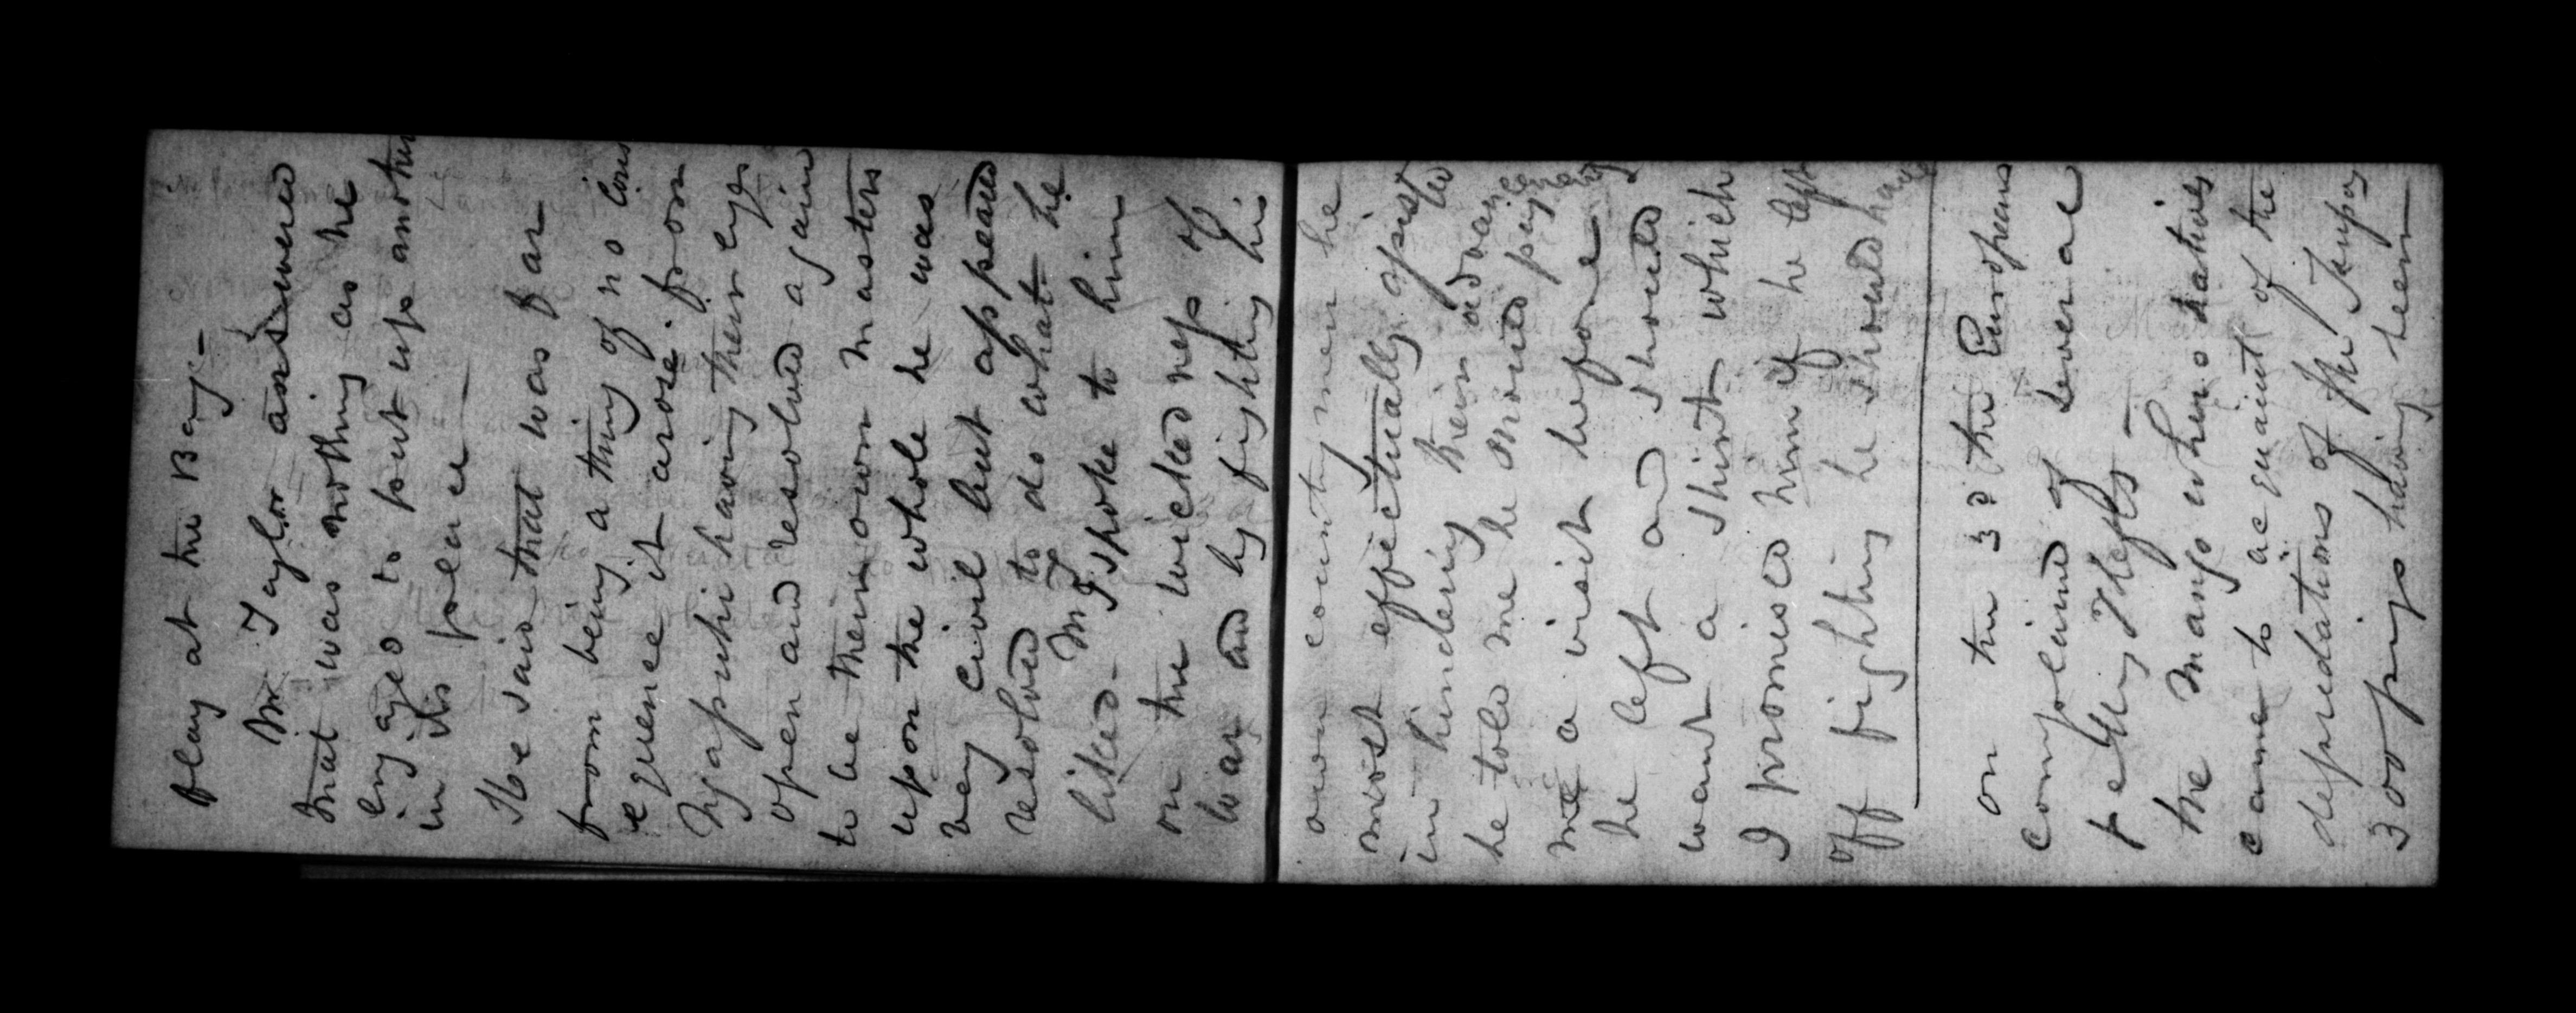 flag at the Bay —
Mr Taylor answered
that was nothing as he
engaged to put up another
in its place —
He said that was far
from being a thing of no cons
equence it arose from
Ngapuhi having their eyes
open and resolved again
to be their own masters
upon the whole he was
very civil but appeared
resolved to do what he
liked — Mr T spoke to him
on the wickedness of
war and by fighting his
own countrymen he
most effectually assisted
in hindering their advance
he told me he would pay
me a visit before
he left and should
want a shirt which
I promised him if he left
off fighting he should have
on the 3d the Europeans
complained of several
petty Thefts —
the Mangowhero natives
came to acquaint of the
depredations of the Taupos
300 pigs having been